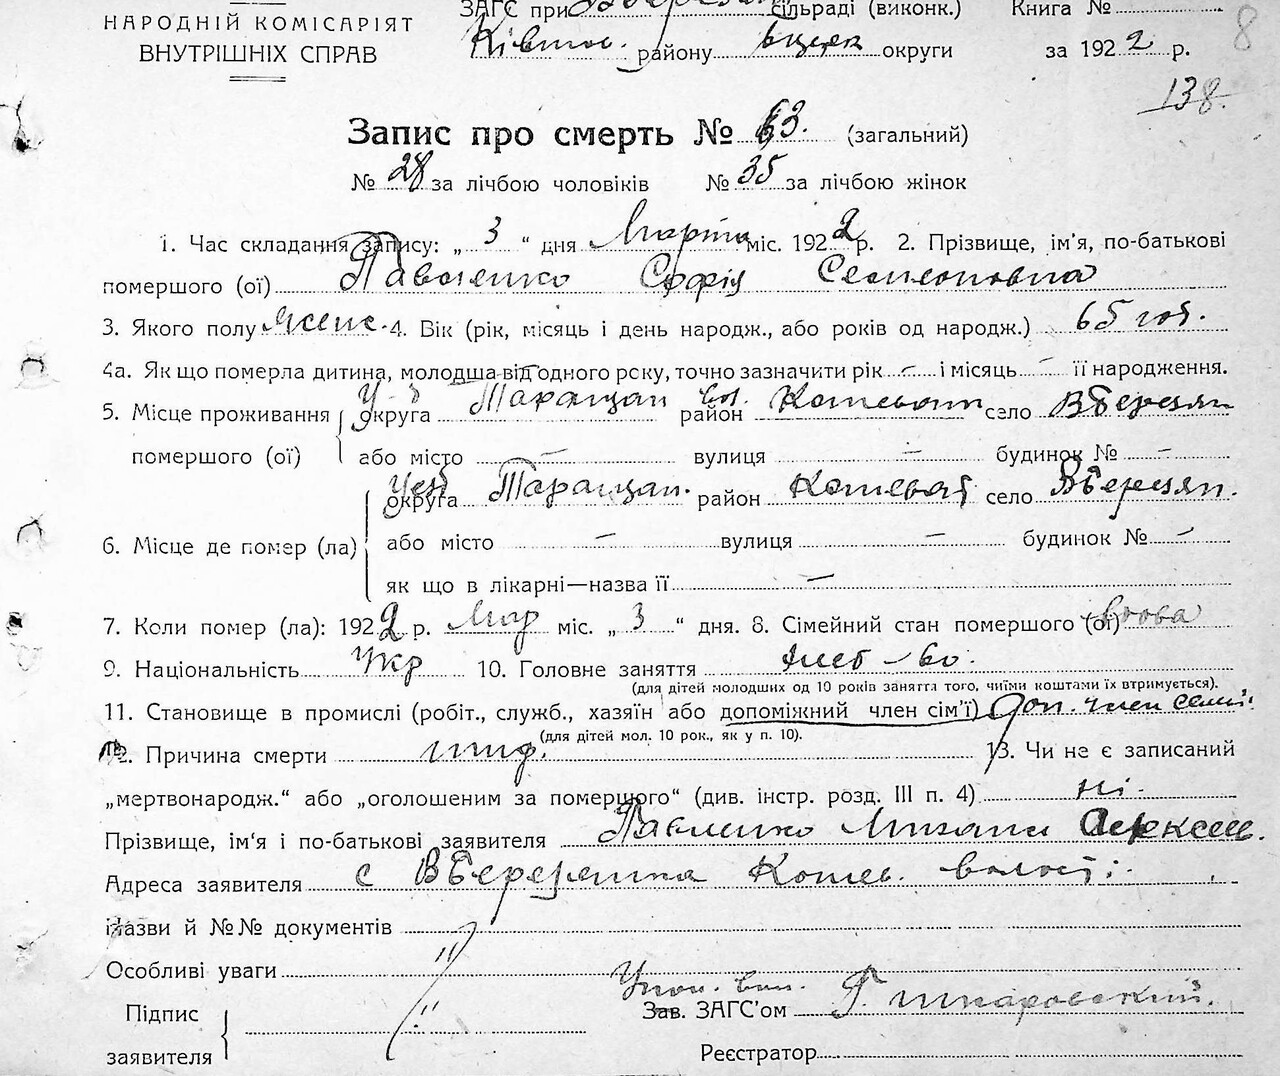 НАРОДНІЙ КОМІСАРІЯТ
ВНУТРІШНІХ СПРАВ
ЗАГС при сільраді (виконк.) Книга №
району округи за 1922 р.
8
138.
Запис про смерть № 63. (загальний)
№ 28 за лічбою чоловіків № 35 за лічбою жінок
1. Час складання запису: „ 3 “ дня Марта міс. 1922 р. 2. Прізвище, ім'я, по-батькові
помершого (ої) Павленко Софія Семеновна
3. Якого полу Женс. 4. Вік (рік, місяць і день народж., або років од народж.) 65 год.
4а. Як що померла дитина, молодша від одного року, точно зазначити рік – і місяць – її народження.
5. Місце проживання округа Таращан район село ВБерезян
помершого (ої) або місто – вулиця – будинок № –
округа Таращан. район село ВБерезян.
6. Місце де помер (ла) або місто – вулиця – будинок № –
як що в лікарні—назва її –
7. Коли помер (ла): 1922 р. Мар міс. „ 3 “ дня. 8. Сімейний стан помершого (ої) вдова
9. Національність Укр 10. Головне заняття хлеб-во.
(для дітей молодших од 10 років заняття того, чиїми коштами їх втримується).
11. Становище в промислі (робіт., служб., хазяїн або допоміжний член сім'ї) Доп. член семії.
(для дітей мол. 10 рок., як у п. 10).
12. Причина смерти тиф. 13. Чи не є записаний
„мертвонародж.“ або „оголошеним за помершого“ (див. інстр. розд. III п. 4) ні.
Прізвище, ім'я і по-батькові заявителя Павленко
Адреса заявителя с ВБерезянка Кошев. волості.
Назви й №№ документів
Особливі уваги "
Підпис
заявителя "
Зав. ЗАГС'ом Г. Шкаровський.
Реєстратор